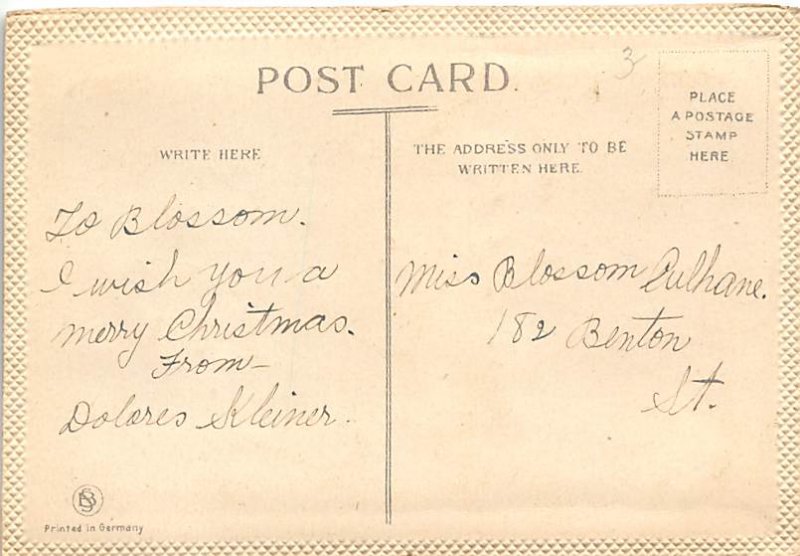 POST CARD.
3
PLACE
A POSTAGE
STAMP
HERE
WRITE HERE
THE ADDRESS ONLY TO BE
WRITTEN HERE.
To Blossom.
I wish you a
merry Christmas.
From—
Dolores Kleiner.
Miss Blossom Culhane.
182 Benton
St.
Printed in Germany